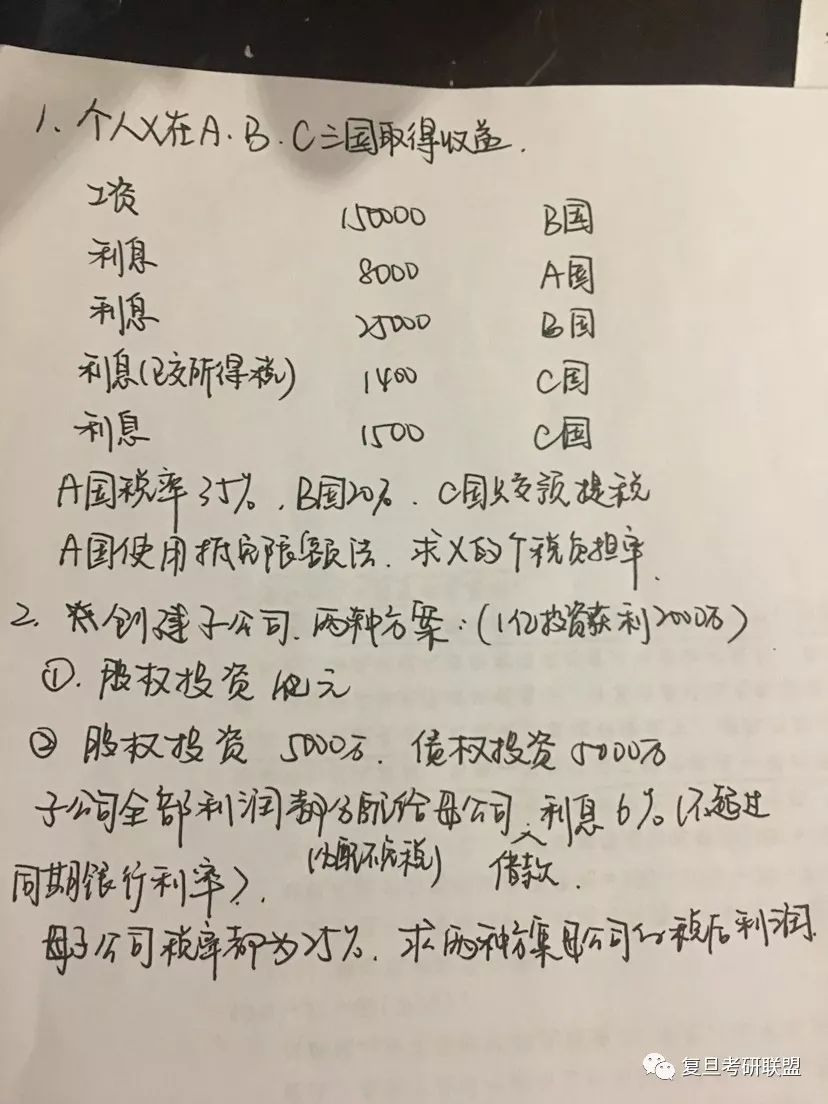 1、个人X在A、B、C三国取得收益.
工资 150000 B国
利息 8000 A国
利息 25000 B国
利息(已交所得税) 1400 C国
利息 1500 C国
A国税率35%、B国20%、C国只交预提税
A国使用抵免限额法、求X的个税负担率.
2、创建子公司、两种方案:(1亿投资获利2000万)
①、股权投资1亿元
② 股权投资 5000万、债权投资5000万
子公司全部利润都分配给母公司、利息6%(不超过
(分配不完税) 借款
同期银行利率).
母子公司税率都为25%、求两种方案母公司的税后利润.
复旦考研联盟